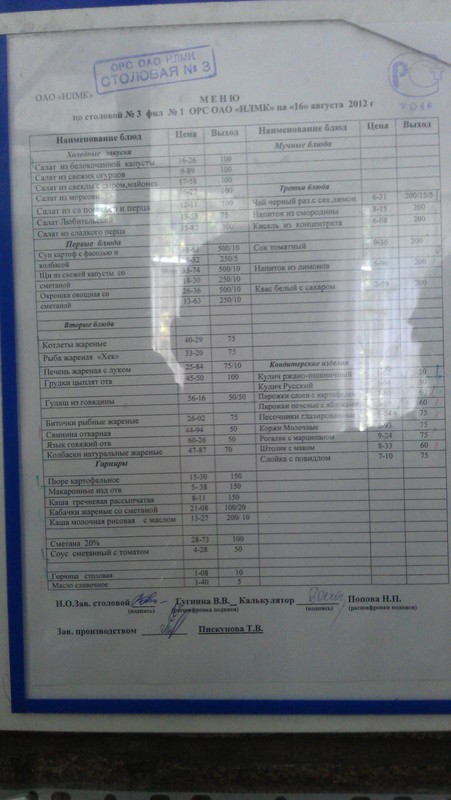 ОРС ОАО НЛМК
СТОЛОВАЯ № 3
ОАО «НЛМК»
МЕНЮ
по столовой № 3 фил № 1 ОРС ОАО «НЛМК» на «16» августа 2012 г
Наименование блюд Цена Выход Наименование блюд Цена Выход
Холодные закуски Мучные блюда
Салат из белокочанной капусты 16-26 100
Салат из свежих огурцов 9-89 100
Салат из свеклы с сыром,майонез 17-58 100
Салат из моркови 100 Третьи блюда
Салат из со перца 12-11 100 Чай черный раз.с сах.лимон 6-31 200/15/5
Салат Любительский 75 Напиток из смородины 8-15 200
Салат из сладкого перца 100 Кисель из концентрата 6-08 200
Первые блюда
Суп картоф с фасолью и 500/10 Сок томатный 200
колбасой 250/5
Щи из свежей капусты со 500/10 Напиток из лимонов 200
сметаной 18-30 250/10
Окрошка овощная со 26-36 500/10 Квас белый с сахаром 200
сметаной 13-63 250/10
Вторые блюда
Котлеты жареные 40-29 75
Рыба жареная «Хек» 33-20 75
Печень жареная с луком 25-84 75/10 Кондитерские изделия
Грудки цыплят отв 45-50 100 Кулич ржано-пшеничный 50
Кулич Русский
Гуляш из говядины 56-16 50/50 Пирожки слоен с картофелем
Пирожки печеные с яблоками 60
Биточки рыбные жареные 26-02 75 Песочники глазированные 75
Свинина отварная 44-94 50 Коржи Молочные 75
Язык говяжий отв 60-26 50 Рогалик с марципаном 9-24 75
Колбаски натуральные жареные 47-87 70 Штолик с маком 8-33 60
Гарниры Слойка с повидлом 7-10 75
Пюре картофельное 15-30 150
Макаронные изд отв 5-38 150
Каша гречневая рассыпчатая 8-11 150
Кабачки жареные со сметаной 21-08 100/20
Каша молочная рисовая с маслом 13-27 200/10
Сметана 20% 28-73 100
Соус сметанный с томатом 4-28 50
Горчица столовая 1-08 10
Масло сливочное 1-40 5
И.О.Зав. столовой Гугнина В.В. Калькулятор Попова Н.П.
(подпись) (расшифровка подписи) (подпись) (расшифровка подписи)
Зав. производством Пискунова Т.В.